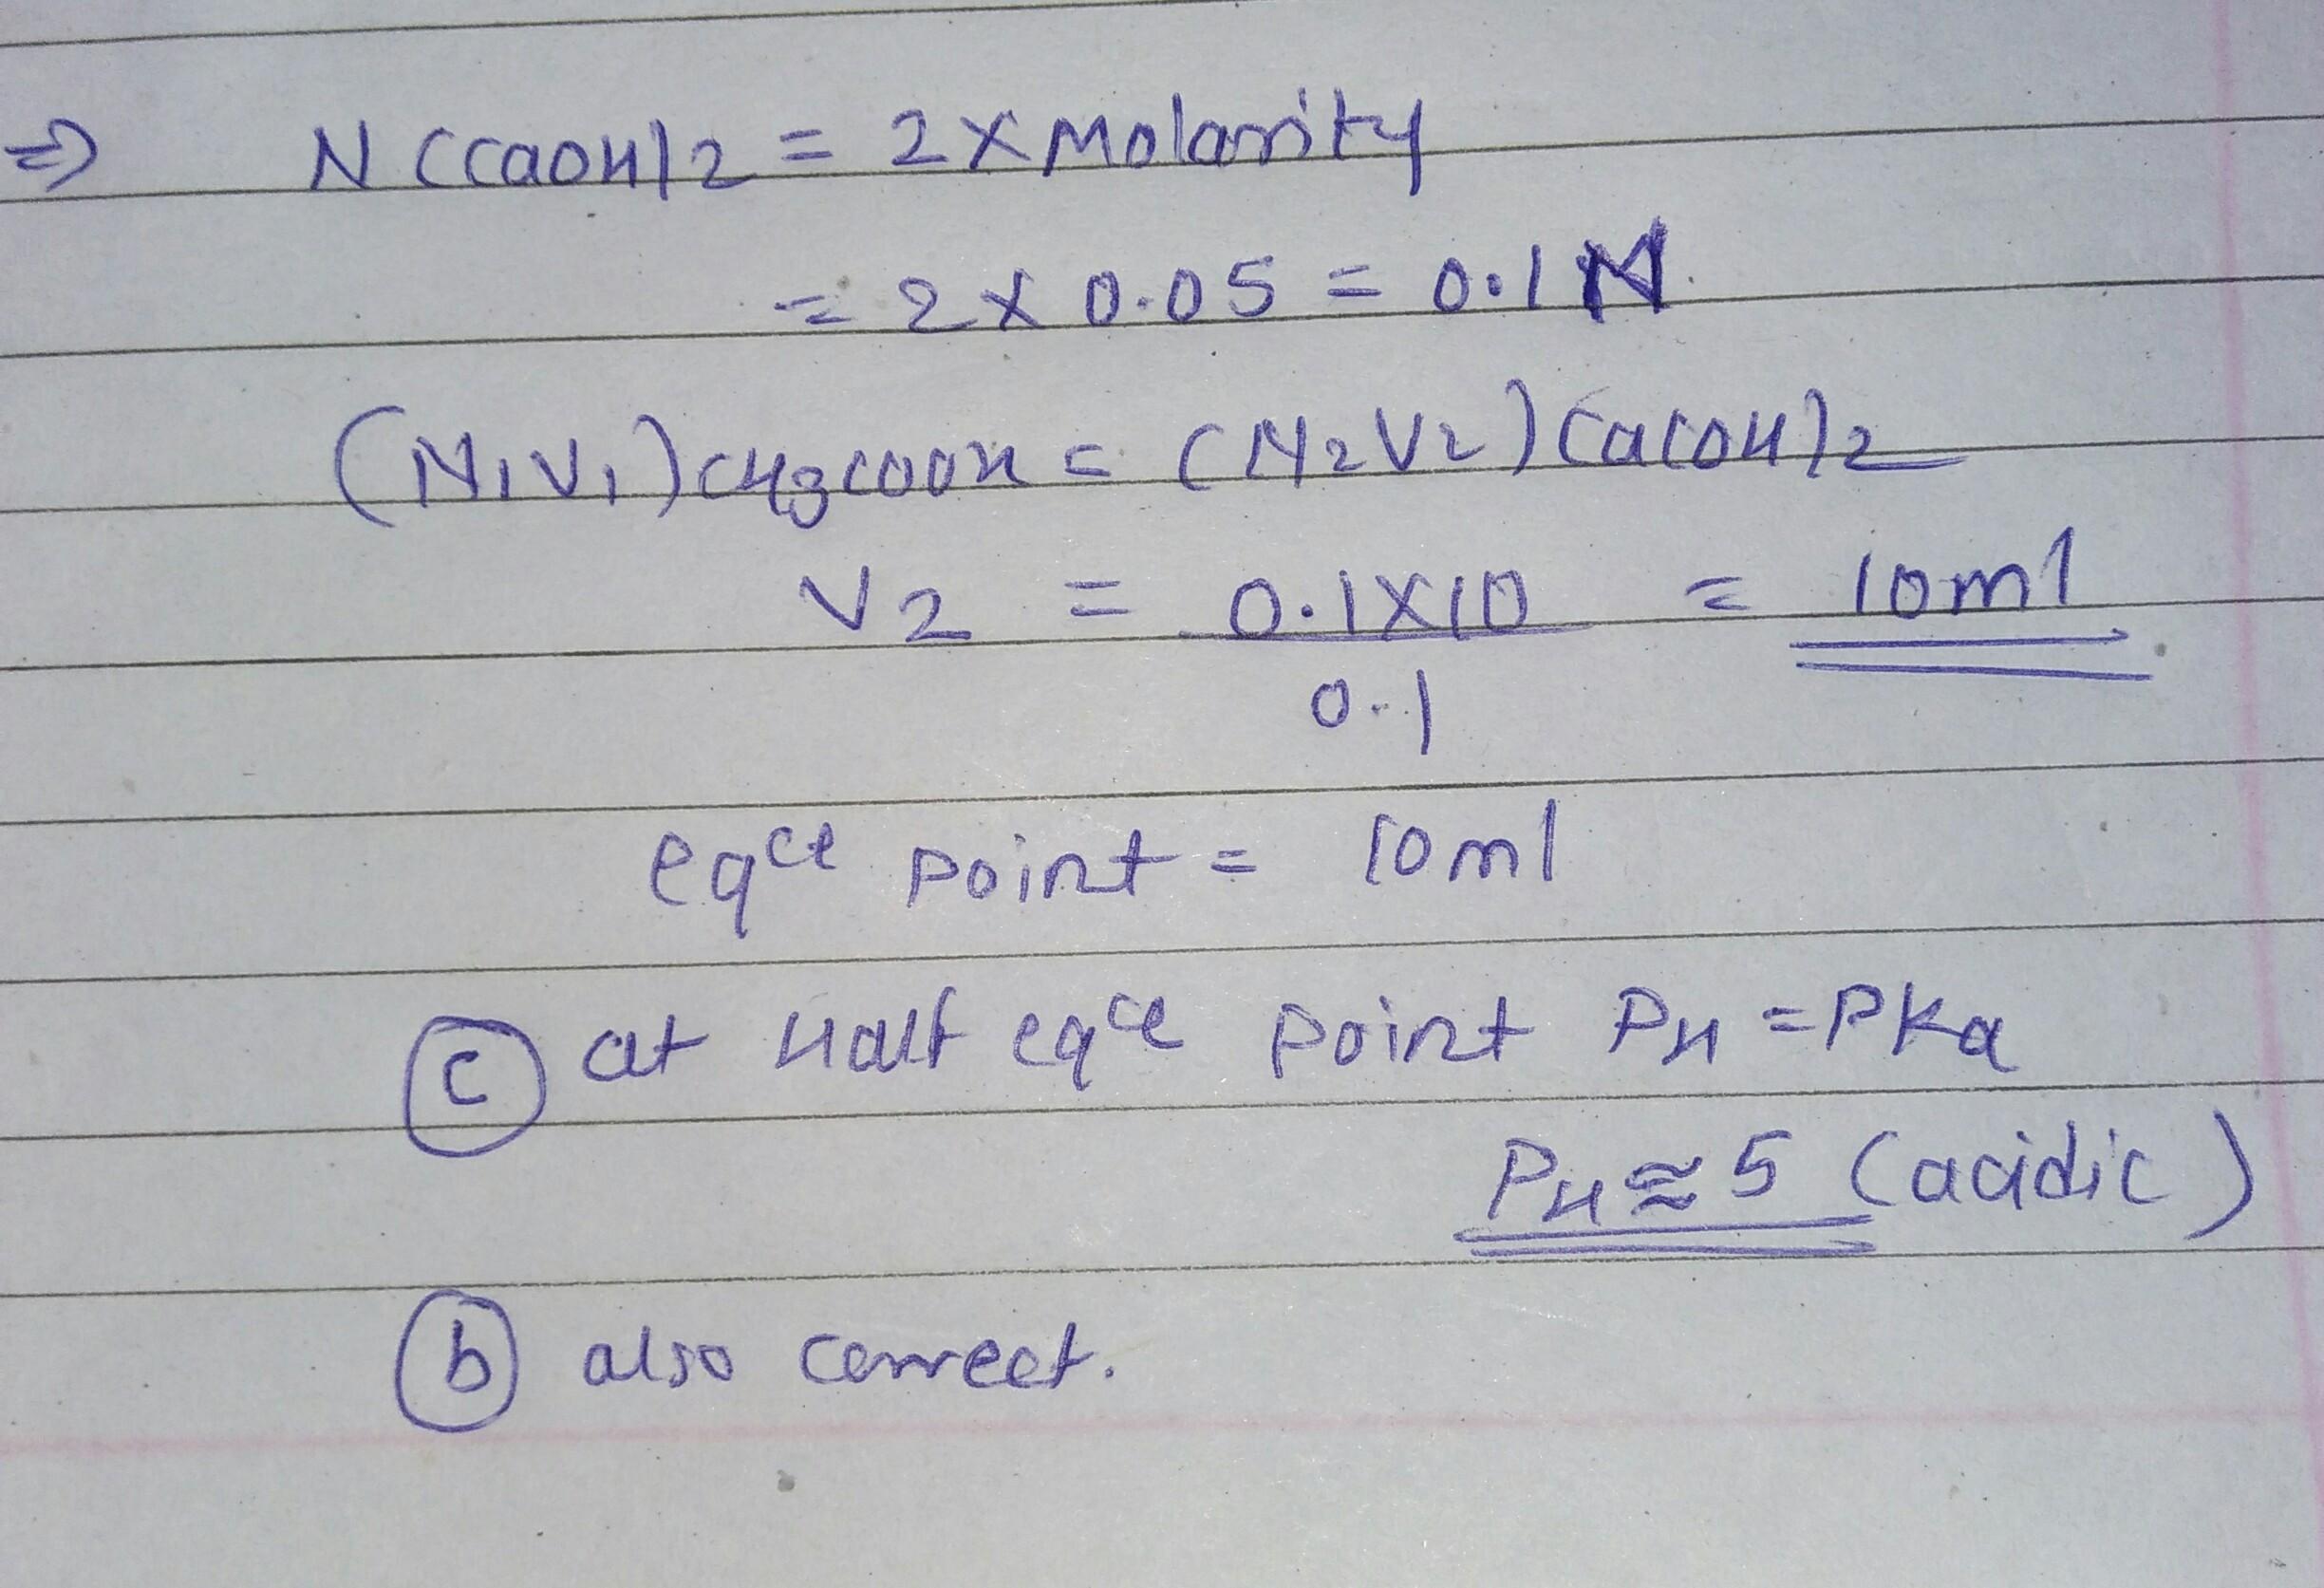 ⇒ N (CaOH)2 = 2 × Molarity
= 2 × 0.05 = 0.1 N.
(N1V1)CH3COOH = (N2V2)Ca(OH)2
V2 = 0.1×10 = 10ml
0.1
eqce point = 10ml
c at Half eqce point PH = PKa
PH ≈ 5 (acidic)
b also correct.